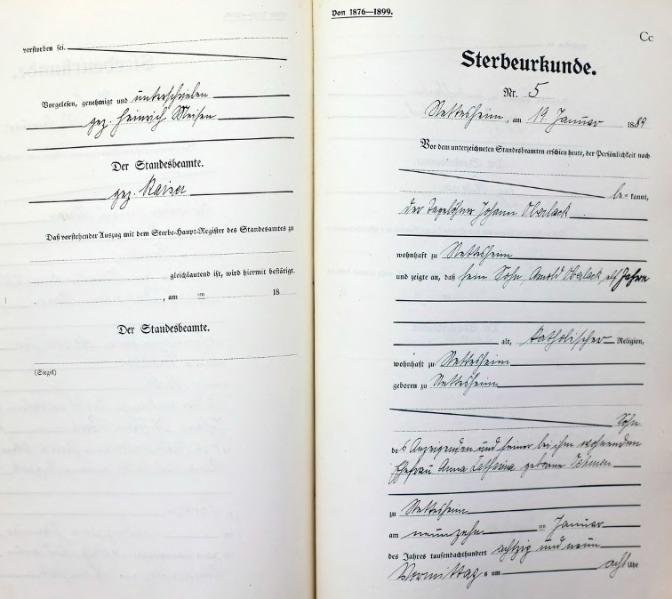 verstorben sei.
Vorgelesen, genehmigt und unterschrieben
gez. Heinrich Meisen
Der Standesbeamte.
gez. Kaiser
Daß vorstehender Auszug mit dem Sterbe-Haupt-Register des Standesamtes zu
gleichlautend ist, wird hiermit bestätigt.
, am ten 18
Der Standesbeamte.
(Siegel)
Von 1876—1899.
Cc
Sterbeurkunde.
Nr. 5
Nettesheim, am 19 Januar 1889
Vor dem unterzeichneten Standesbeamten erschien heute, der Persönlichkeit nach
be- kannt,
der Tagelöhner Johann Oberlack
wohnhaft zu Nettesheim
und zeigte an, daß sein Sohn Arnold Oberlack, elf Jahre
alt, katholischer Religion,
wohnhaft zu Nettesheim
geboren zu Nettesheim
Sohn
des Anzeigenden und seiner bei ihm wohnenden
Ehefrau Anna Catharina geborene
zu Nettesheim
am neunzehn ten Januar
des Jahres tausendachthundert achtzig und neun
Vormittags um acht Uhr